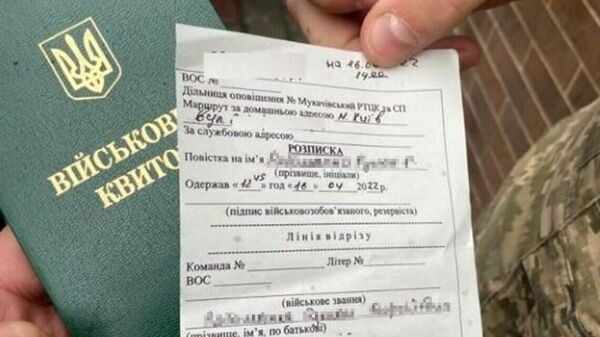 ВІЙСЬКОВ
КВИТО
на 16.0 22
14.00
ВОС №
Дільниця оповіщення № Мукачівський РТЦК та СП
Маршрут за домашньою адресою м. Київ
вул
За службовою адресою
РОЗПИСКА
Повістка на ім'я
(прізвище, ініціали)
Одержав « 12 45 » год « 16 » 04 2022 р.
(підпис військовозобов'язаного, резервіста)
Лінія відрізу
Команда № Літер №
ВОС
(військове звання)
(прізвище, ім'я, по батькові)